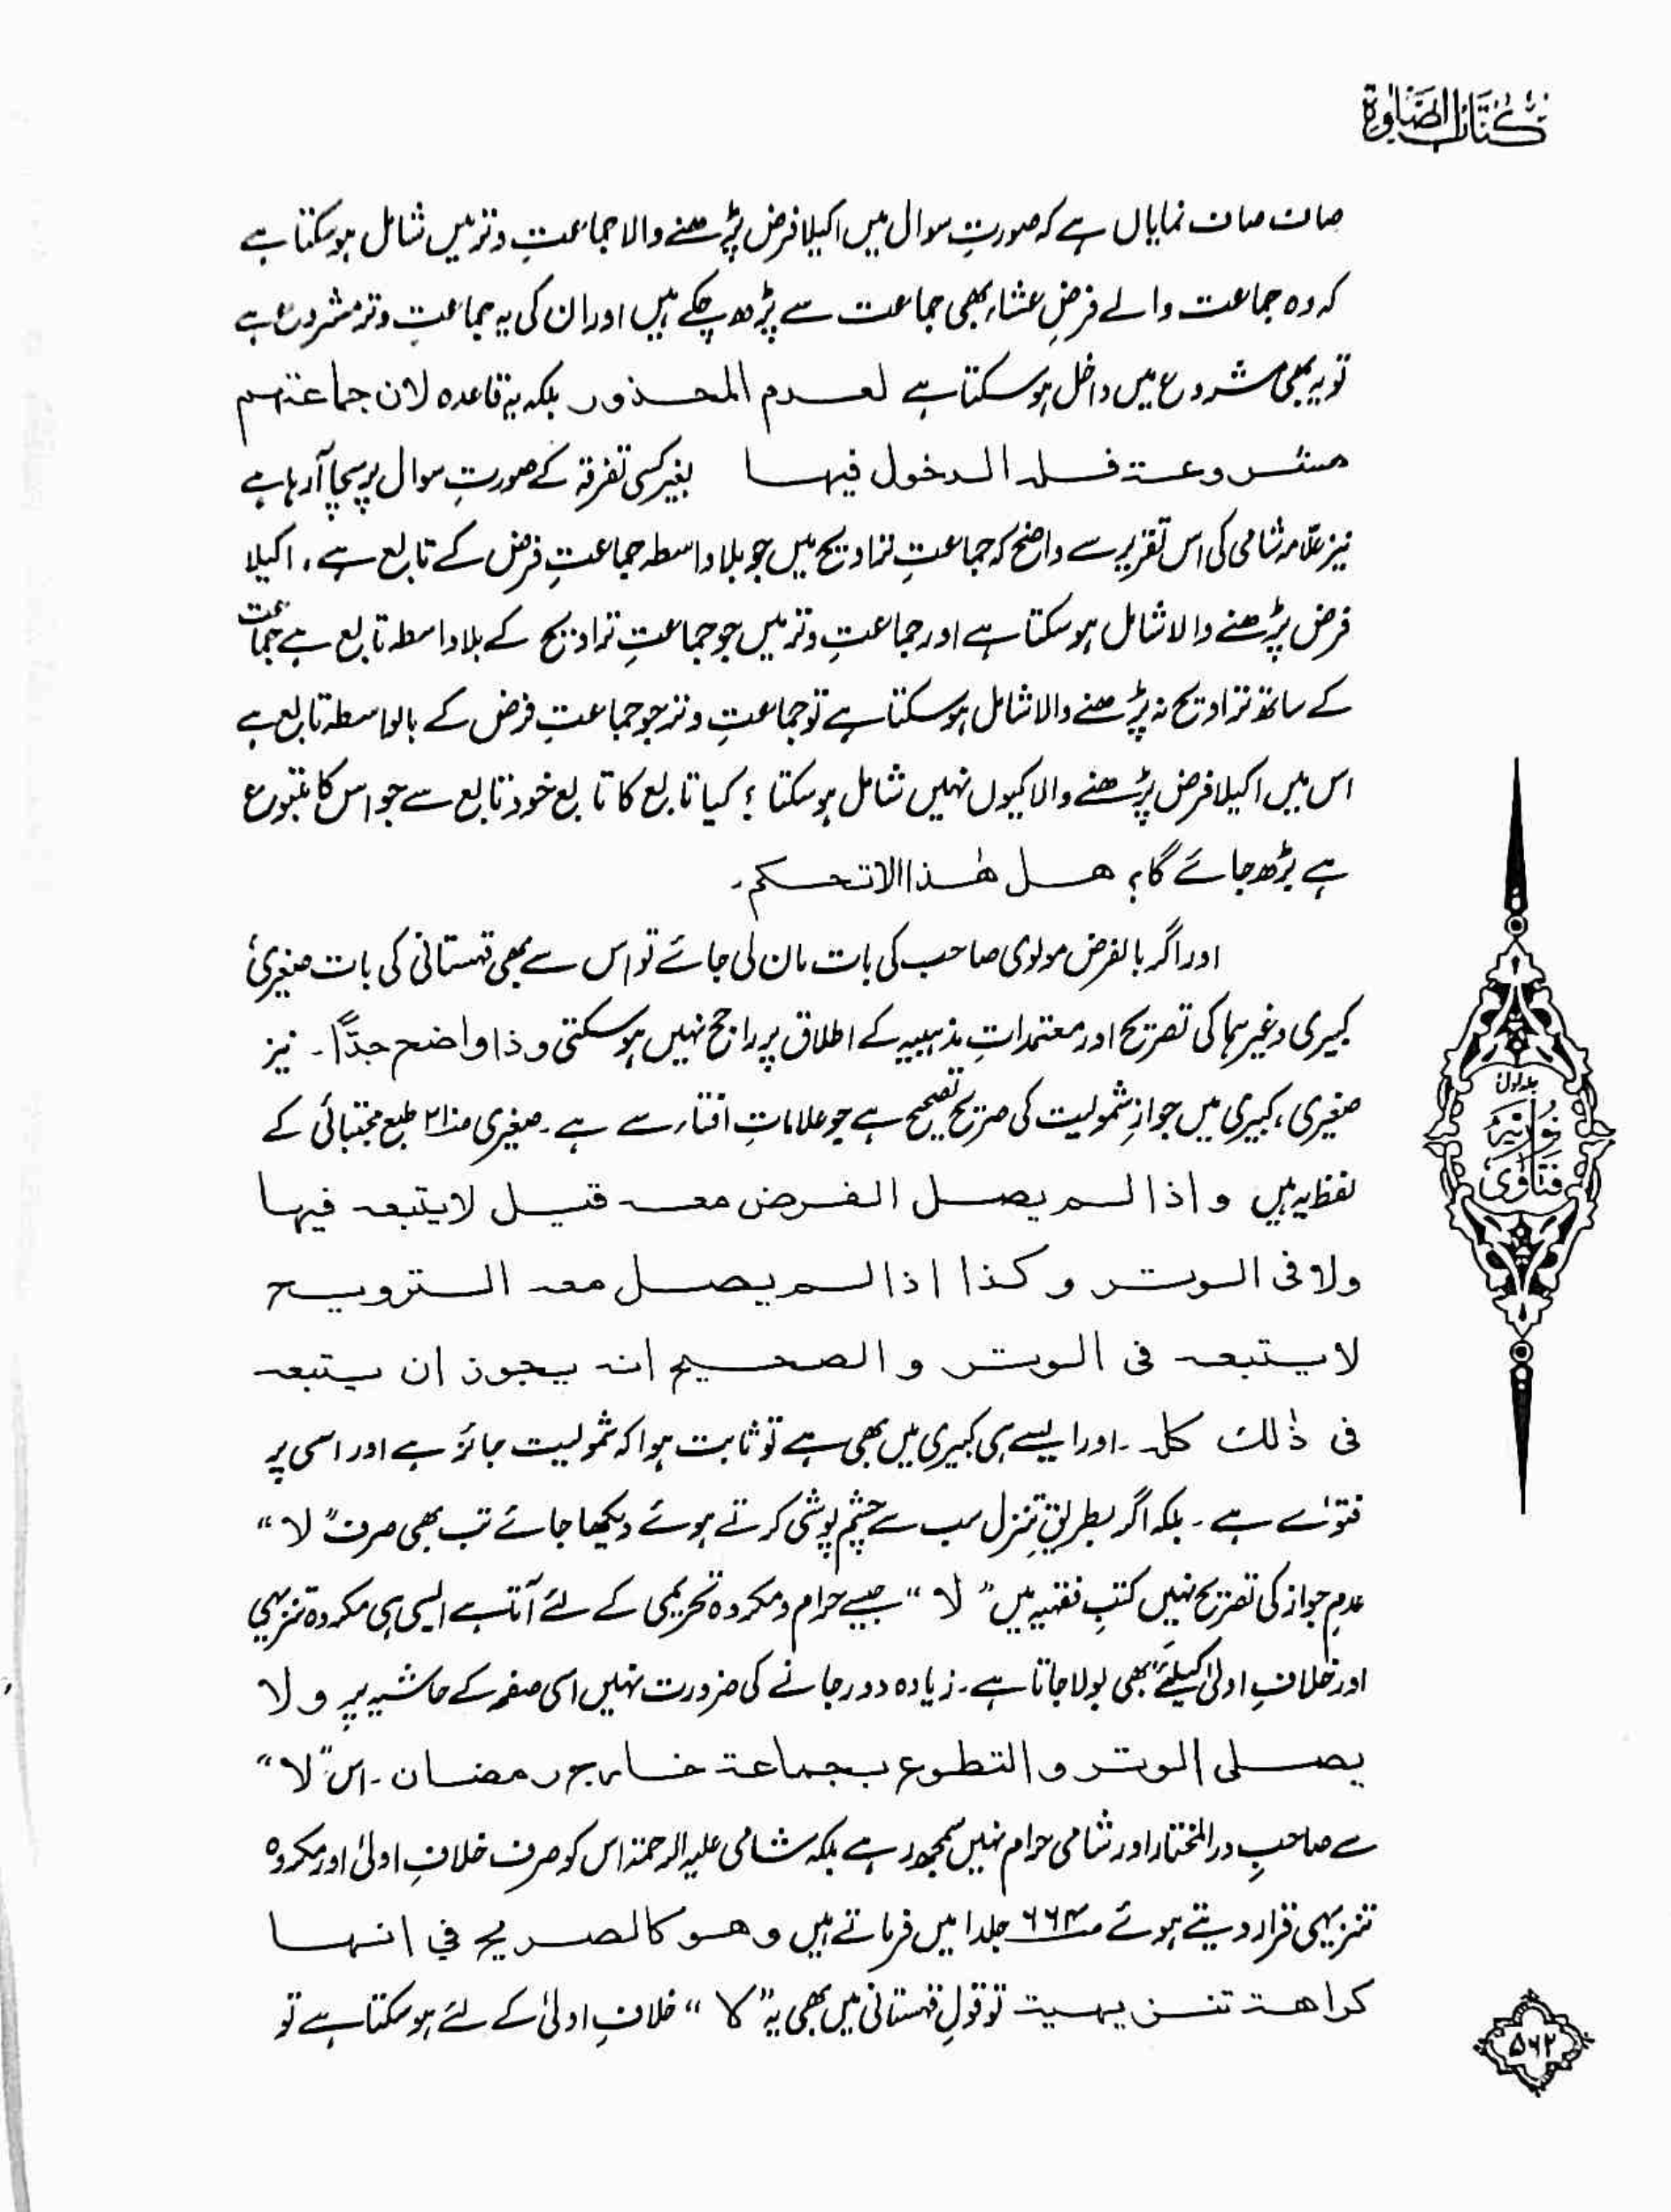 کتاب الصلوٰۃ
صاف صاف نمایاں ہے کہ صورتِ سوال میں اکیلا فرض پڑھنے والا جماعتِ وتر میں شامل ہو سکتا ہے
کہ وہ جماعت والے فرضِ عشاء بھی جماعت سے پڑھ چکے ہیں اور ان کی یہ جماعتِ وتر مشروع ہے
تو یہ بھی مشروع میں داخل ہو سکتا ہے لعدم المحذور بلکہ یہ قاعدہ لان جماعتہم
مشروعۃ فلہ الدخول فیہا بغیر کسی تفرقہ کے صورتِ سوال پر سچا آ رہا ہے
نیز علّامہ شامی کی اس تقریر سے واضح کہ جماعتِ تراویح میں جو بلا واسطہ جماعتِ فرض کے تابع ہے، اکیلا
فرض پڑھنے والا شامل ہو سکتا ہے اور جماعتِ وتر میں جو جماعتِ تراویح کے بلا واسطہ تابع ہے جماعت
کے ساتھ تراویح نہ پڑھنے والا شامل ہو سکتا ہے تو جماعتِ وتر جو جماعتِ فرض کے بالواسطہ تابع ہے
اس میں اکیلا فرض پڑھنے والا کیوں نہیں شامل ہو سکتا ؟ کیا تابع کا تابع خود تابع سے جو اس کا متبوع
ہے بڑھ جائے گا؟ ھل ھٰذا الا تحکم۔
اور اگر بالفرض مولوی صاحب کی بات مان لی جائے تو اس سے بھی قہستانی کی بات صغیریٔ
کبیری وغیرہما کی تصریح اور معتمداتِ مذہبیہ کے اطلاق پر راجح نہیں ہو سکتی وذا واضح جدّاً۔ نیز
صغیری، کبیری میں جوازِ شمولیت کی صریح تصحیح ہے جو علاماتِ افتاء سے ہے۔ صغیری ص۲۱۰ طبع مجتبائی کے
لفظ یہ ہیں واذا لم یصل الفرض معہ قیل لایتبعہ فیہا
ولا فی الوتر وکذا اذا لم یصل معہ الترویح
لا یتبعہ فی الوتر والصحیح انہ یجوز ان یتبعہ
فی ذٰلک کلہ۔ اور ایسے ہی کبیری میں بھی ہے تو ثابت ہوا کہ شمولیت جائز ہے اور اسی پر
فتوٰے ہے۔ بلکہ اگر بطریقِ تنزل سب سے چشم پوشی کرتے ہوئے دیکھا جائے تب بھی صرف ”لا“
عدمِ جواز کی تصریح نہیں کتبِ فقہیہ میں ”لا“ جیسے حرام و مکروہ تحریمی کے لئے آتا ہے ایسی ہی مکروہ تنزیہی
اور خلافِ اولیٰ کیلئے بھی بولا جاتا ہے۔ زیادہ دور جانے کی ضرورت نہیں اسی صفحہ کے حاشیہ پر ولا
یصلی الوتر والتطوع بجماعۃ خارج رمضان۔ اس ”لا“
سے صاحبِ درالمختار اور شامی حرام نہیں سمجھ رہے بلکہ شامی علیہ الرحمۃ اس کو صرف خلافِ اولیٰ اور مکروہ
تنزیہی قرار دیتے ہوئے ص۶۶۴ جلد۱ میں فرماتے ہیں وھو کالصریح فی انھا
کراھۃ تنزیہیۃ تو قولِ قہستانی میں بھی یہ ”لا“ خلافِ اولیٰ کے لئے ہو سکتا ہے تو
جلد اول
نوریہ
فتاویٰ
۵۶۲